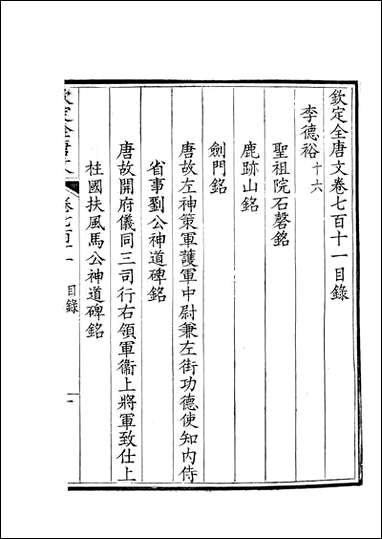 欽定全唐文卷七百十一目錄
李德裕十六
聖祖院石磬銘
鹿跡山銘
劍門銘
唐故左神策軍護軍中尉兼左街功德使知內侍
省事劉公神道碑銘
唐故開府儀同三司行右領軍衞上將軍致仕上
柱國扶風馬公神道碑銘
欽定全唐文
卷七百十一 目錄 一